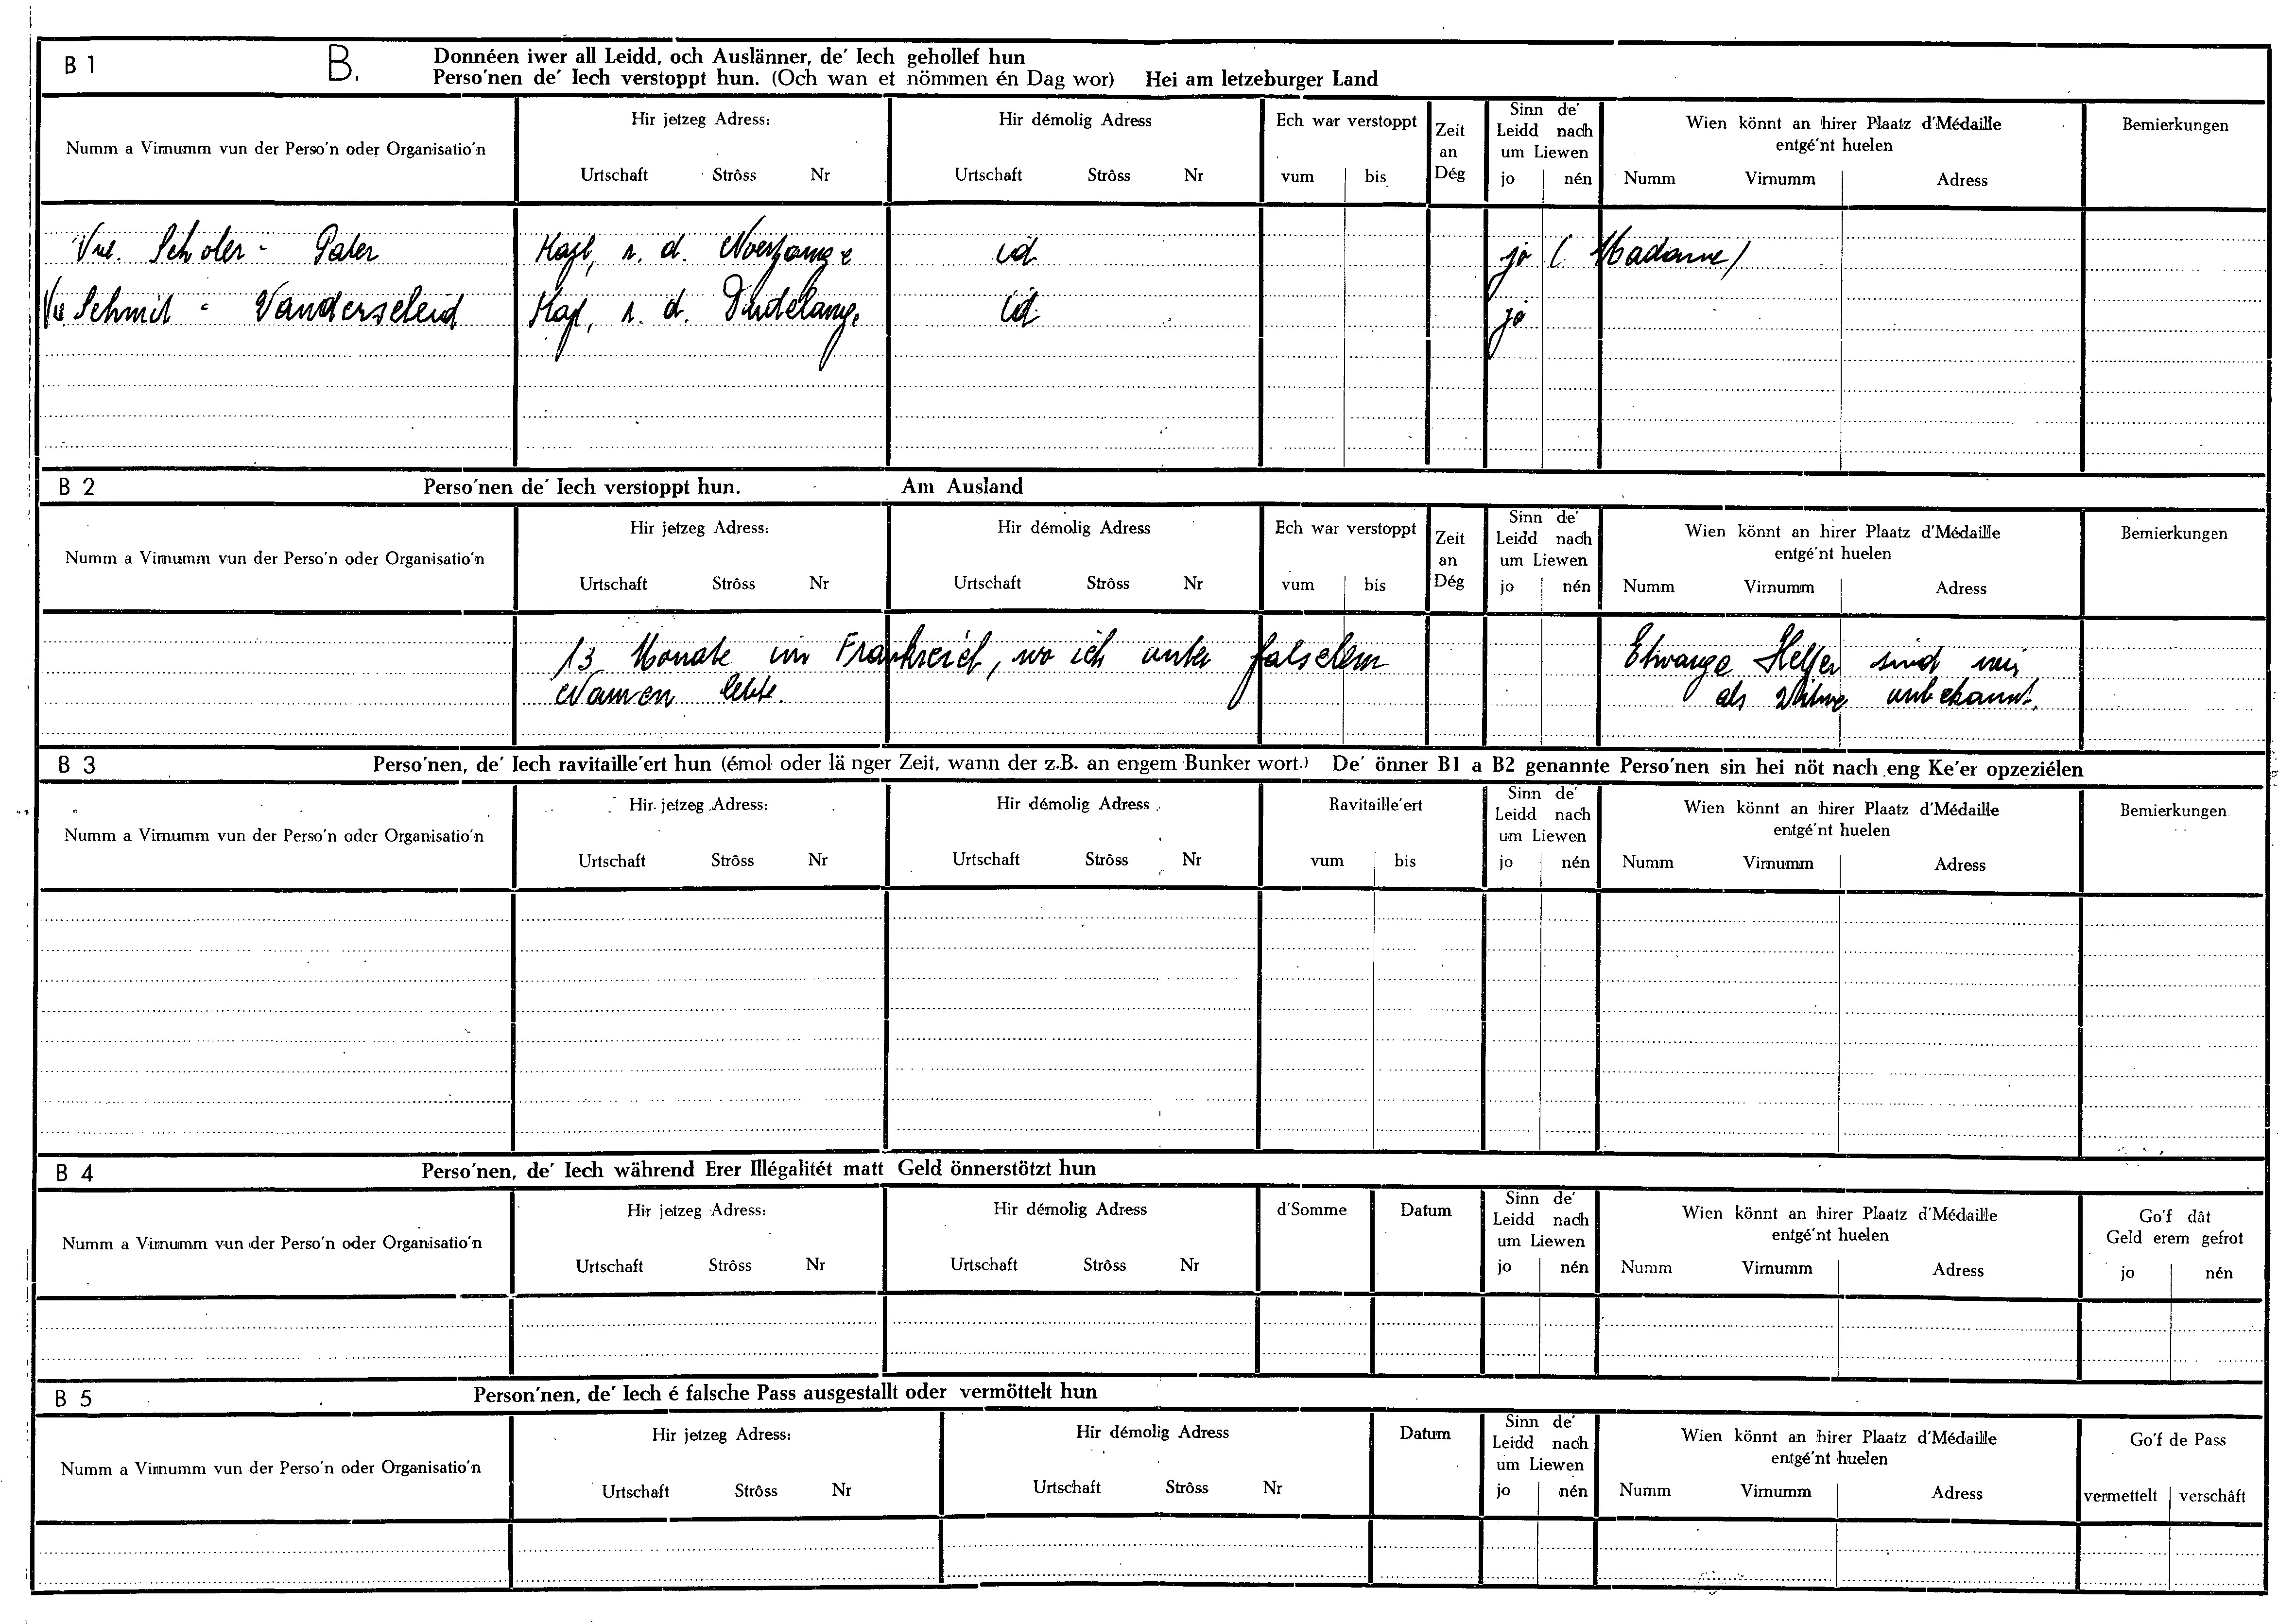 B 1 B. Donnéen iwer all Leidd, och Auslänner, de' Iech gehollef hun
Perso'nen de' Iech verstoppt hun. (Och wan et nömmen én Dag wor) Hei am letzeburger Land
Numm a Virnumm vun der Perso'n oder Organisatio'n
Hir jetzeg Adress:
Urtschaft Strôss Nr
Hir démolig Adress
Urtschaft Strôss Nr
Ech war verstoppt
vum bis
Zeit
an
Dég
Sinn de'
Leidd nach
um Liewen
jo nén
Wien könnt an hirer Plaatz d'Médaille
entgé'nt huelen
Numm Virnumm Adress
Bemierkungen
Scholer - Kayl, r. d. Noerzange id jo (Madame)
Schmit - Vanderscheid Kayl, r. d. Dudelange id jo
B 2 Perso'nen de' Iech verstoppt hun. Am Ausland
Numm a Virnumm vun der Perso'n oder Organisatio'n
Hir jetzeg Adress:
Urtschaft Strôss Nr
Hir démolig Adress
Urtschaft Strôss Nr
Ech war verstoppt
vum bis
Zeit
an
Dég
Sinn de'
Leidd nach
um Liewen
jo nén
Wien könnt an hirer Plaatz d'Médaille
entgé'nt huelen
Numm Virnumm Adress
Bemierkungen
13 Monate in Frankreich, wo ich unter falschem
Namen lebte.
Etwange Helfer sind mir
als Witwe unbekannt.
B 3 Perso'nen, de' Iech ravitaille'ert hun (émol oder länger Zeit, wann der z.B. an engem Bunker wort.) De' önner B1 a B2 genannte Perso'nen sin hei nöt nach eng Ke'er opzeziélen
Numm a Virnumm vun der Perso'n oder Organisatio'n
Hir jetzeg Adress:
Urtschaft Strôss Nr
Hir démolig Adress
Urtschaft Strôss Nr
Ravitaille'ert
vum bis
Sinn de'
Leidd nach
um Liewen
jo nén
Wien könnt an hirer Plaatz d'Médaille
entgé'nt huelen
Numm Virnumm Adress
Bemierkungen
B 4 Perso'nen, de' Iech während Erer Illégalitét matt Geld önnerstötzt hun
Numm a Virnumm vun der Perso'n oder Organisatio'n
Hir jetzeg Adress:
Urtschaft Strôss Nr
Hir démolig Adress
Urtschaft Strôss Nr
d'Somme
Datum
Sinn de'
Leidd nach
um Liewen
jo nén
Wien könnt an hirer Plaatz d'Médaille
entgé'nt huelen
Numm Virnumm Adress
Go'f dât
Geld erem gefrot
jo nén
B 5 Person'nen, de' Iech é falsche Pass ausgestallt oder vermöttelt hun
Numm a Virnumm vun der Perso'n oder Organisatio'n
Hir jetzeg Adress:
Urtschaft Strôss Nr
Hir démolig Adress
Urtschaft Strôss Nr
Datum
Sinn de'
Leidd nach
um Liewen
jo nén
Wien könnt an hirer Plaatz d'Médaille
entgé'nt huelen
Numm Virnumm Adress
Go'f de Pass
vermettelt verschâft